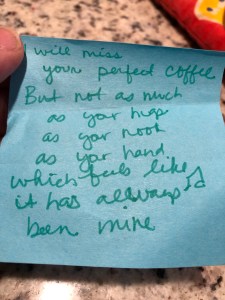 I will miss
your perfect coffee
But not as much
as your hugs
as your nook
as your hand
which feels like
it has always
been mine